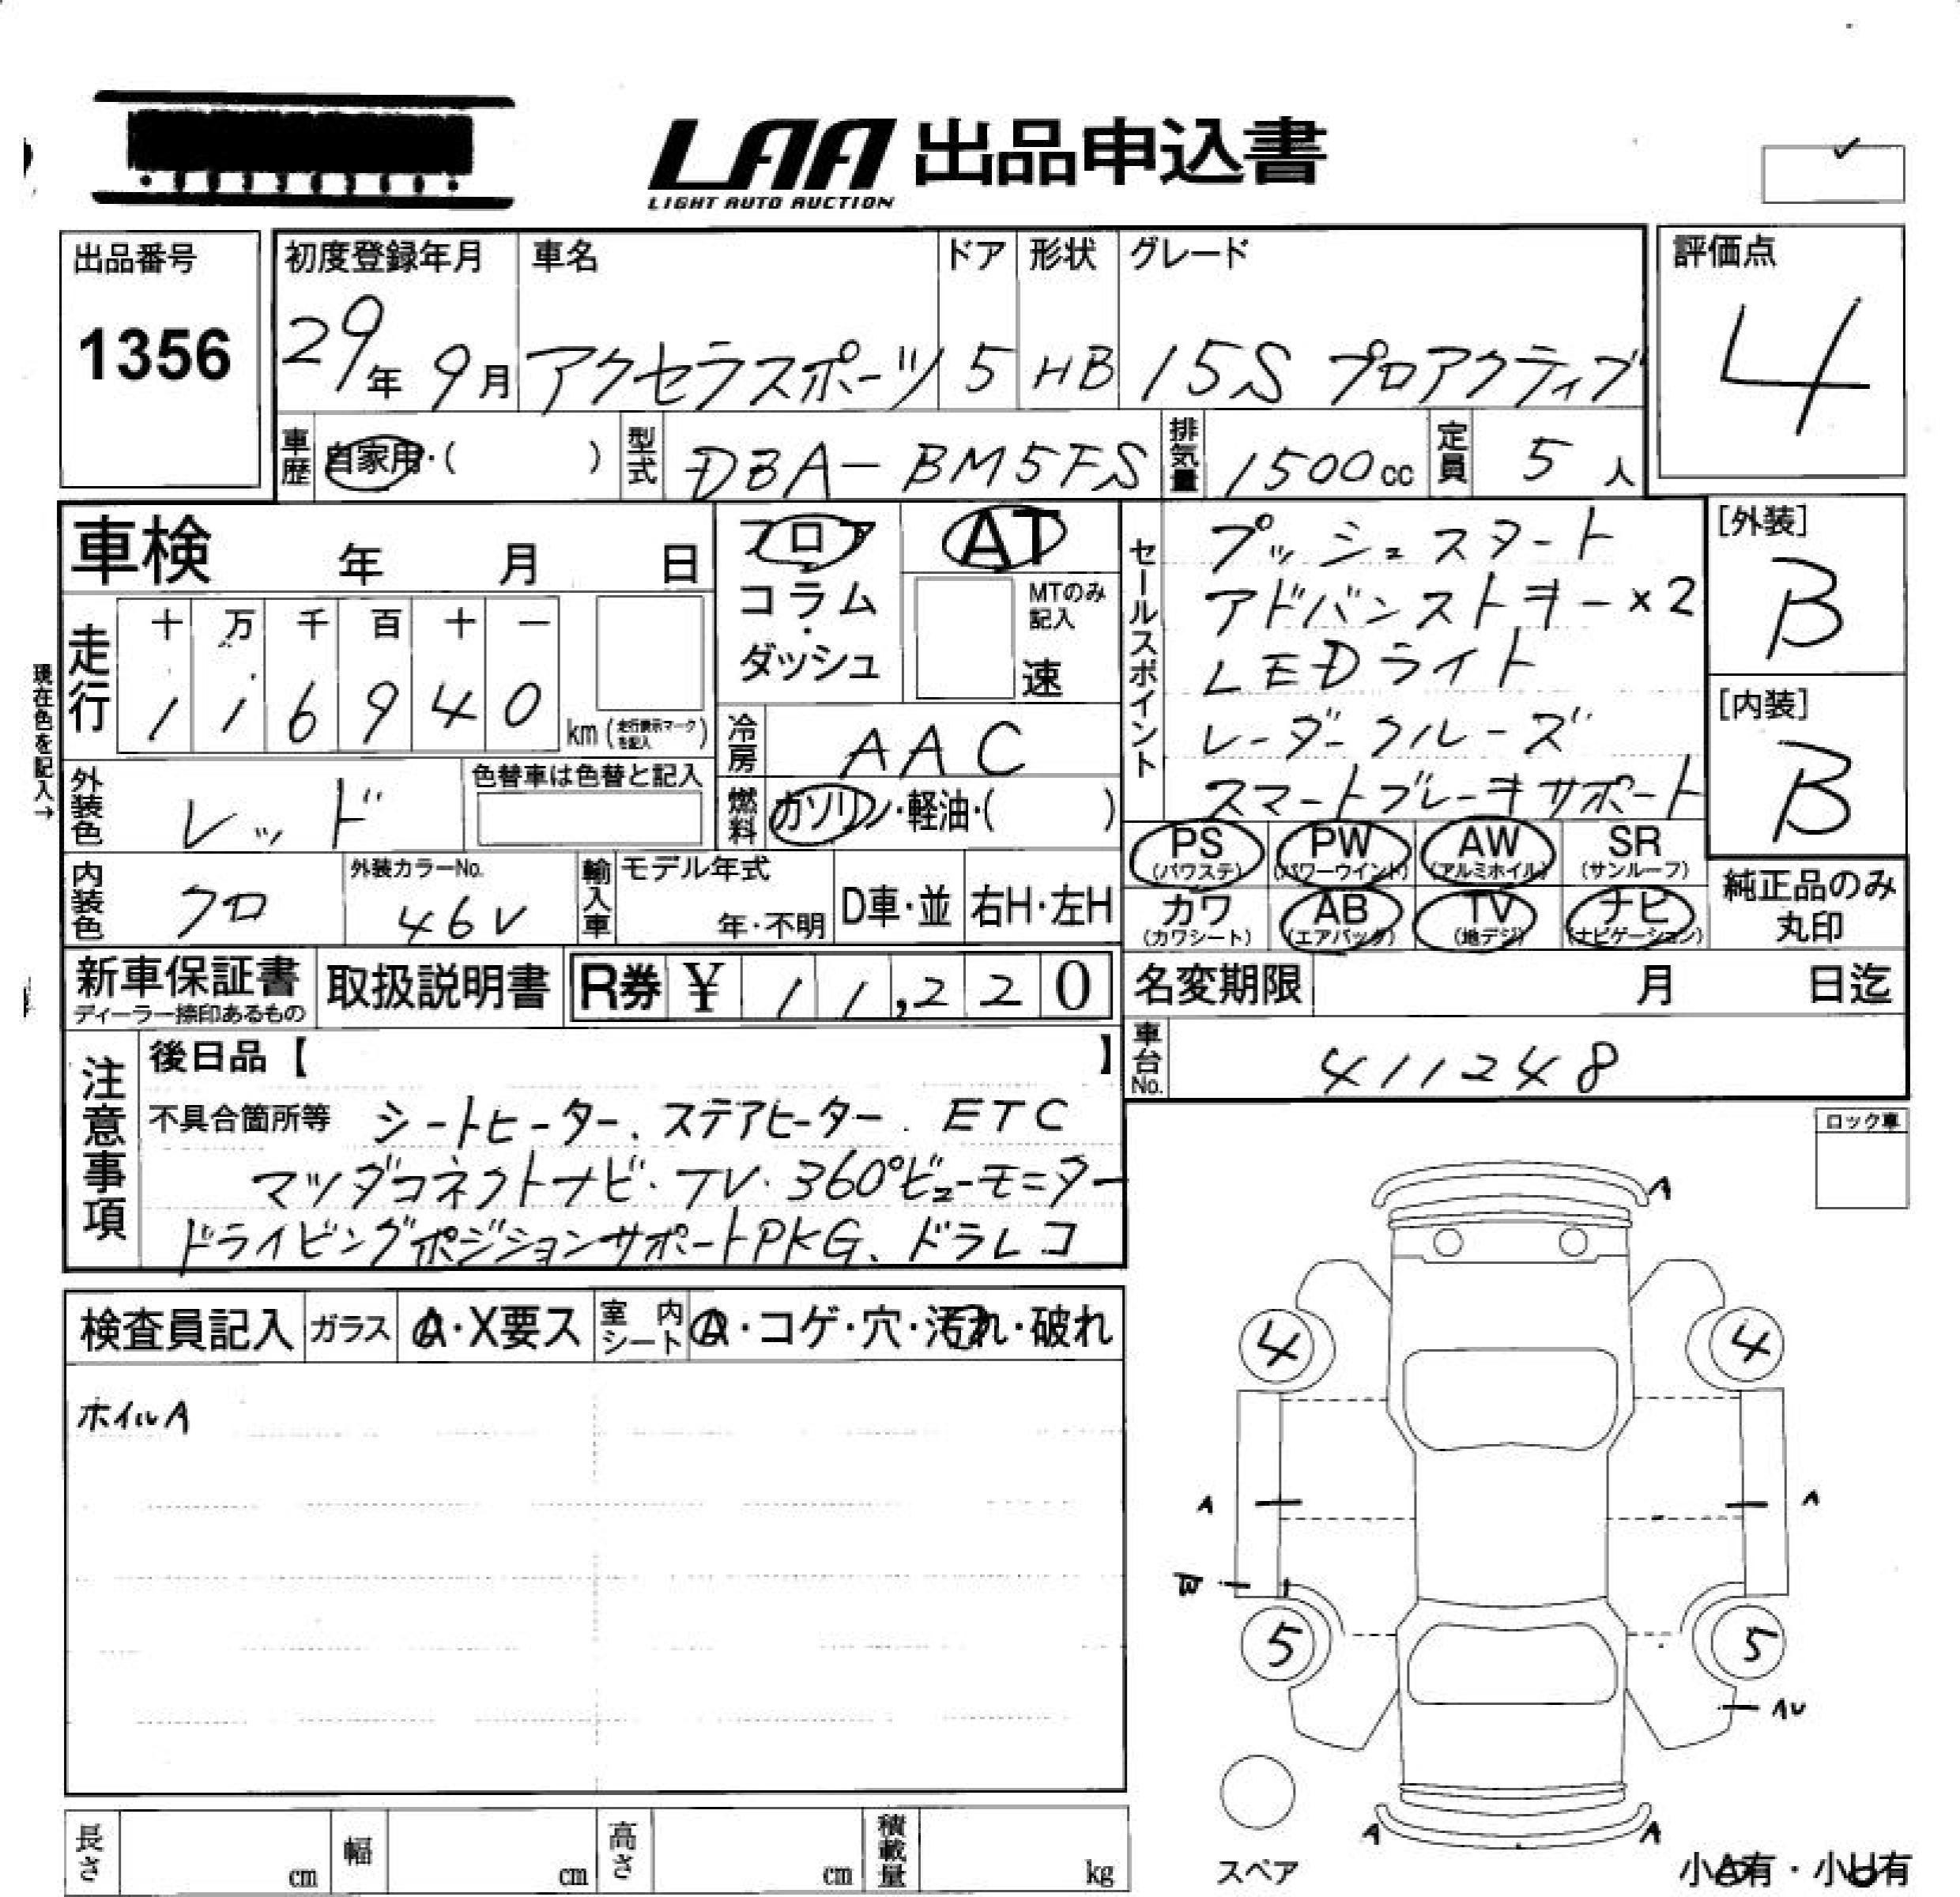 LAA 出品申込書
LIGHT AUTO AUCTION
出品番号
1356
初度登録年月 車名 ドア 形状 グレード
29年 9月 アクセラスポーツ 5 HB 15S プロアクティブ
評価点
4
車歴 自家用・( ) 型式 DBA-BM5FS 排気量 1500cc 定員 5人
車検 年 月 日
フロア
コラム
・
ダッシュ
AT
MTのみ
記入
速
走行 十 万 千 百 十 一
116940 km (走行表示マークを記入)
現在色を記入→
冷房 AAC
外装色 レッド
色替車は色替と記入
燃料 ガソリン・軽油・( )
セールスポイント
プッシュスタート
アドバンストキー×2
LEDライト
レーダークルーズ
スマートブレーキサポート
[外装]
B
[内装]
B
PS PW AW SR
(パワステ) (パワーウインド) (アルミホイル) (サンルーフ)
カワ AB TV ナビ
(カワシート) (エアバック) (地デジ) (ナビゲーション)
純正品のみ
丸印
内装色 クロ
外装カラーNo.
46V
輸入車 モデル年式
年・不明 D車・並 右H・左H
新車保証書
ディーラー捺印あるもの
取扱説明書 R券 ¥ 11,220
名変期限 月 日迄
車台No. 411248
注意事項
後日品【 】
不具合箇所等 シートヒーター、ステアヒーター. ETC
マツダコネクトナビ・TV・360°ビューモニター
ドライビングポジションサポートPKG、ドラレコ
ロック車
検査員記入 ガラス A・X要ス 室内シート A・コゲ・穴・汚れ・破れ
ホイルA
A
4 4
A A
W
5 5
AU
A A
スペア
小A有・小U有
長さ cm 幅 cm 高さ cm 積載量 kg